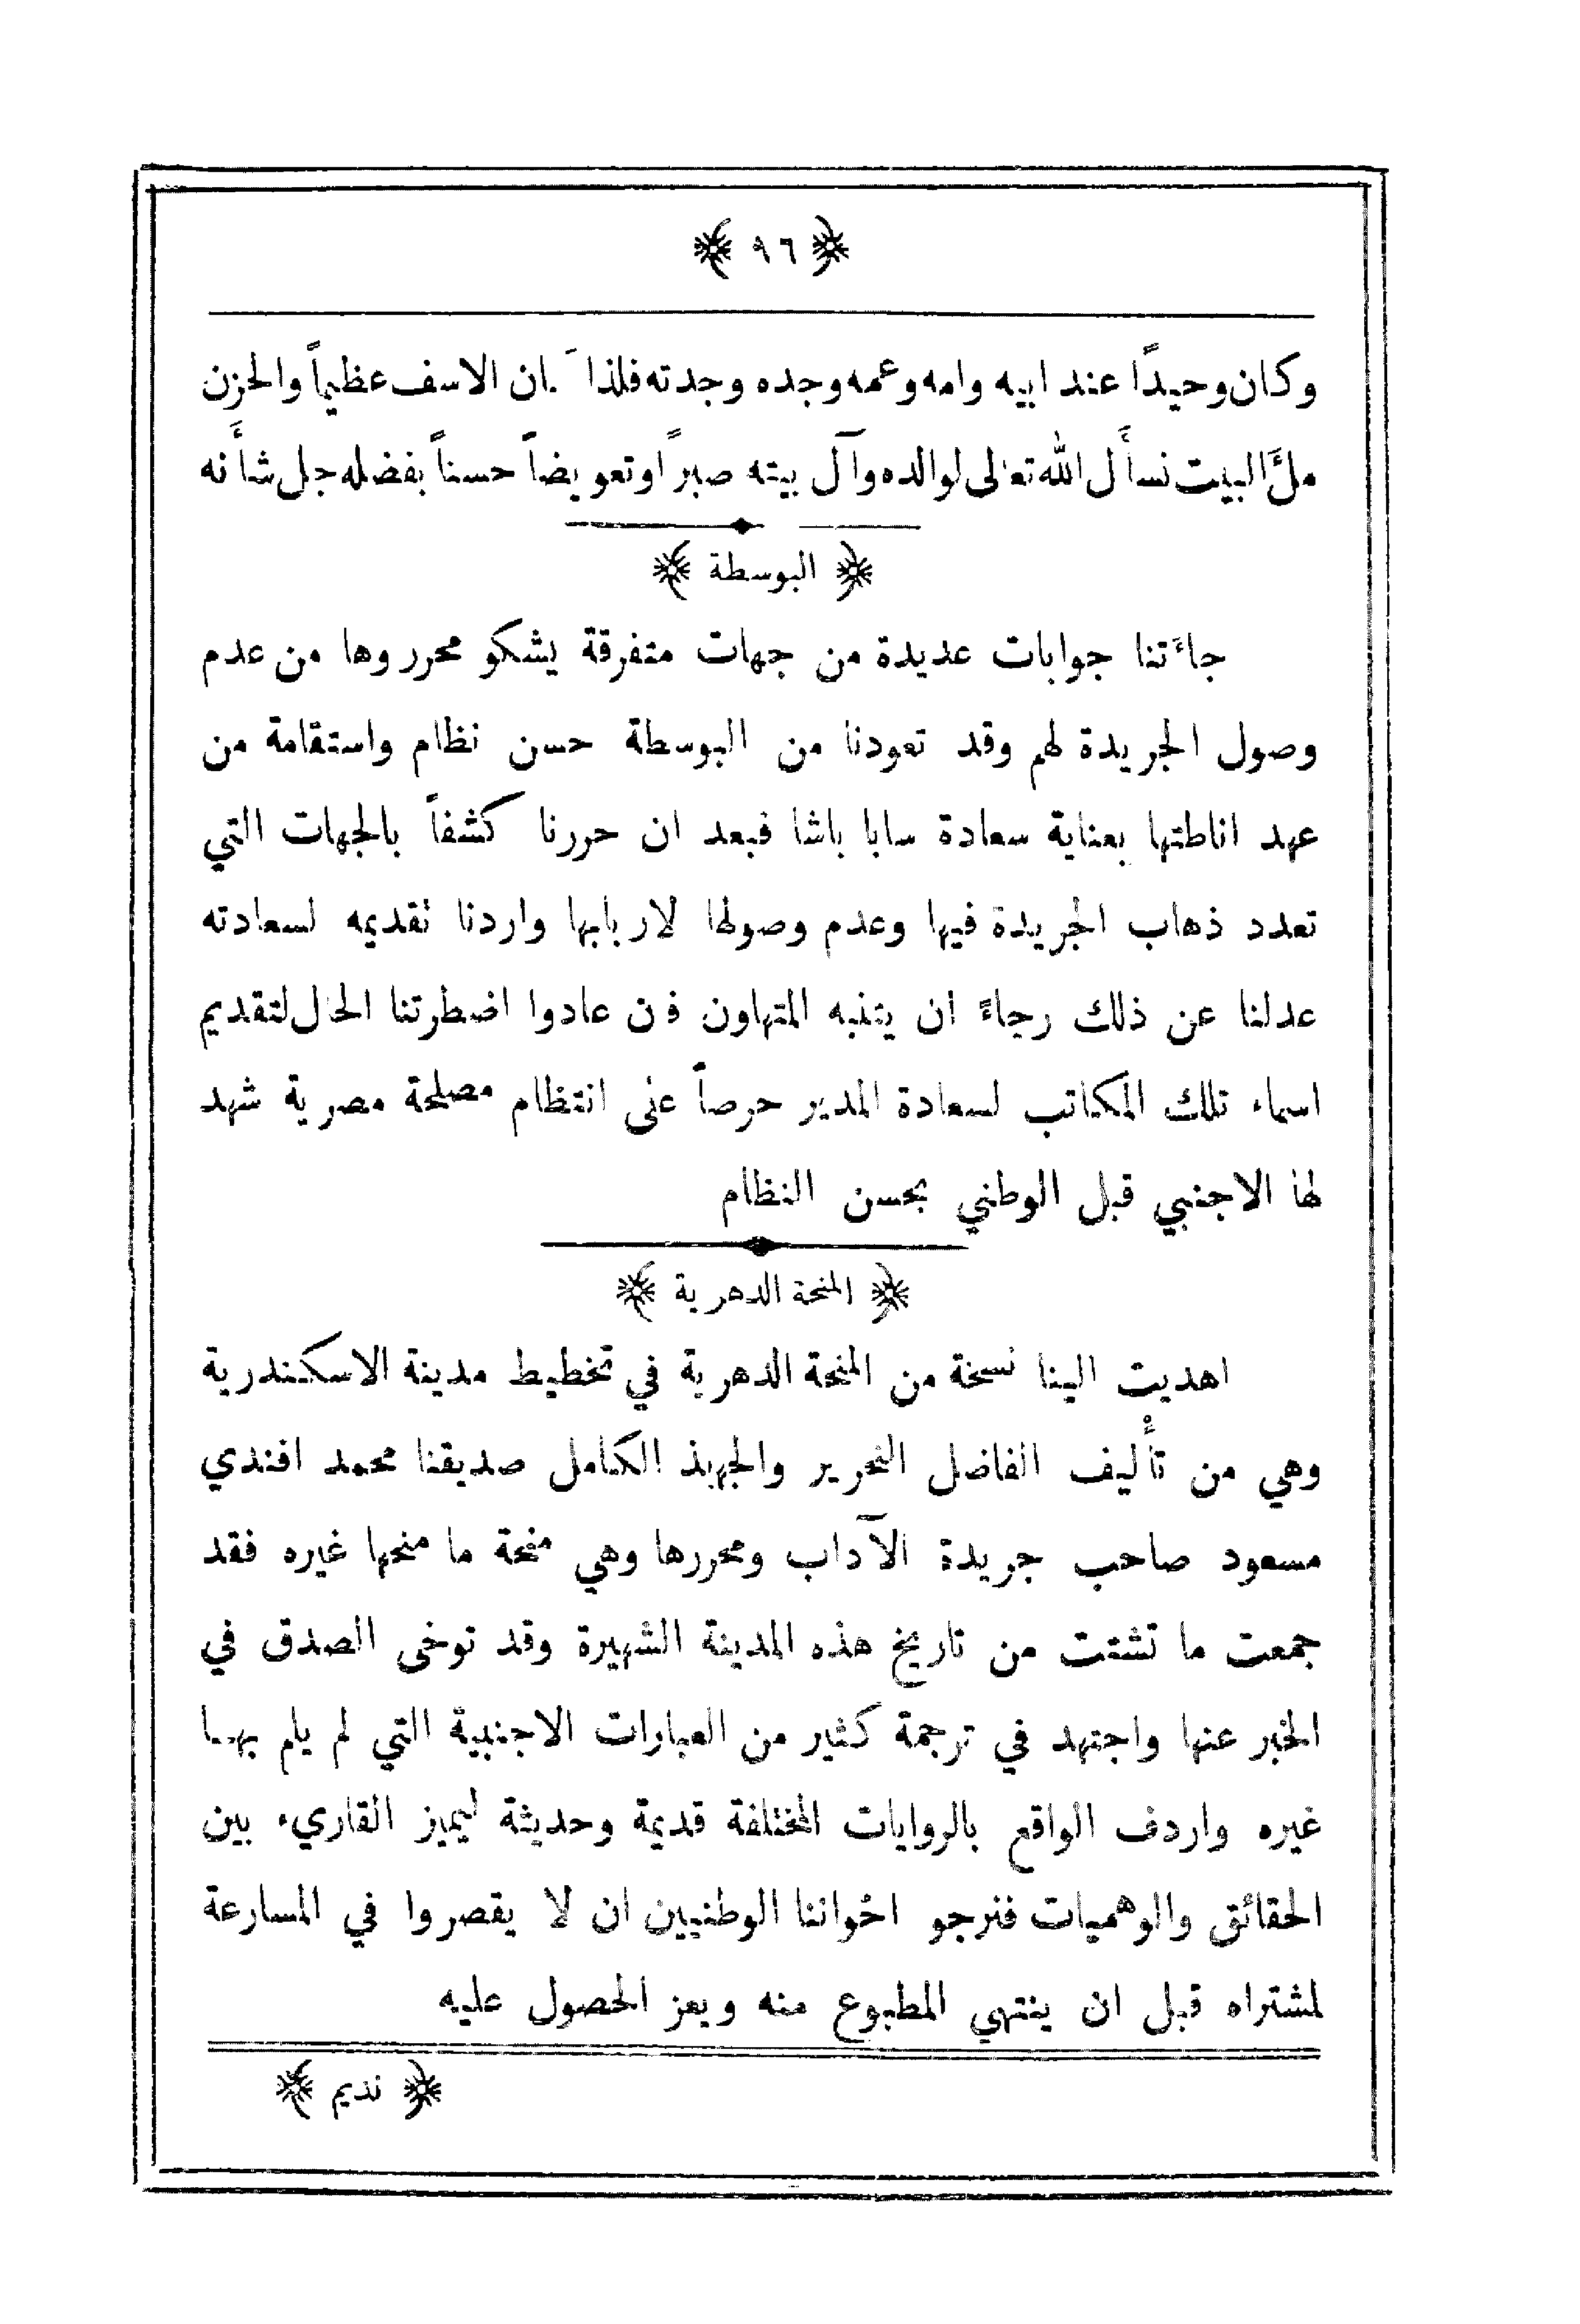 ﴿ ٩٦ ﴾
وكان وحيداً عند ابيه وامه وعمه وجده وجدته فلذا كان الاسف عظيماً والحزن
ملَّ البيت نسأل الله تعالى لوالده وآل بيته صبراً وتعويضاً حسناً بفضله جل شأنه
﴿ البوسطة ﴾
جاءَتنا جوابات عديدة من جهات متفرقة يشكو محرروها من عدم
وصول الجريدة لهم وقد تعودنا من البوسطة حسن نظام واستقامة من
عهد اناطتها بعناية سعادة سابا باشا فبعد ان حررنا كشفاً بالجهات التي
تعدد ذهاب الجريدة فيها وعدم وصولها لاربابها واردنا تقديمه لسعادته
عدلنا عن ذلك رجاءً ان يتنبه المتهاون فان عادوا اضطرتنا الحال لتقديم
اسماء تلك المكاتب لسعادة المدير حرصاً على انتظام مصلحة مصرية شهد
لها الاجنبي قبل الوطني بحسن النظام
﴿ المنحة الدهرية ﴾
اهديت الينا نسخة من المنحة الدهرية في تخطيط مدينة الاسكندرية
وهي من تأليف الفاضل النحرير والجهبذ الكامل صديقنا محمد افندي
مسعود صاحب جريدة الآداب ومحررها وهي منحة ما منحها غيره فقد
جمعت ما تشتت من تاريخ هذه المدينة الشهيرة وقد توخى الصدق في
الخبر عنها واجتهد في ترجمة كثير من العبارات الاجنبية التي لم يلم بها
غيره واردف الواقع بالروايات المختلفة قديمة وحديثة ليميز القاريء بين
الحقائق والوهميات فنرجو اخواننا الوطنيين ان لا يقصروا في المسارعة
لمشتراه قبل ان ينتهي المطبوع منه ويعز الحصول عليه
﴿ نديم ﴾